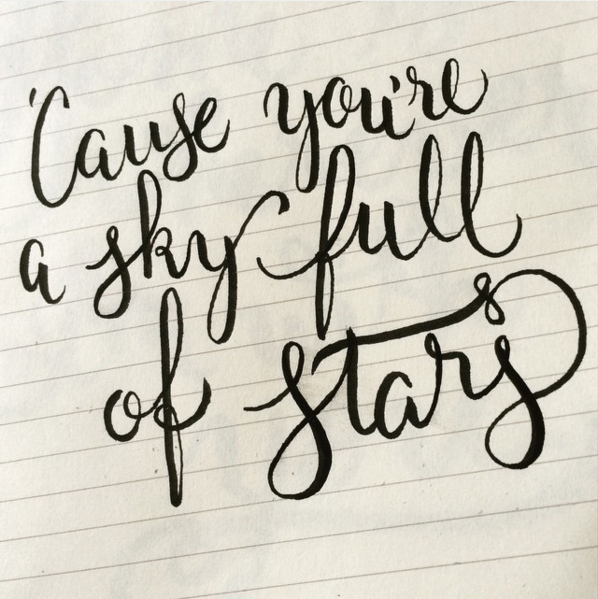 'Cause you're
a sky full
of stars